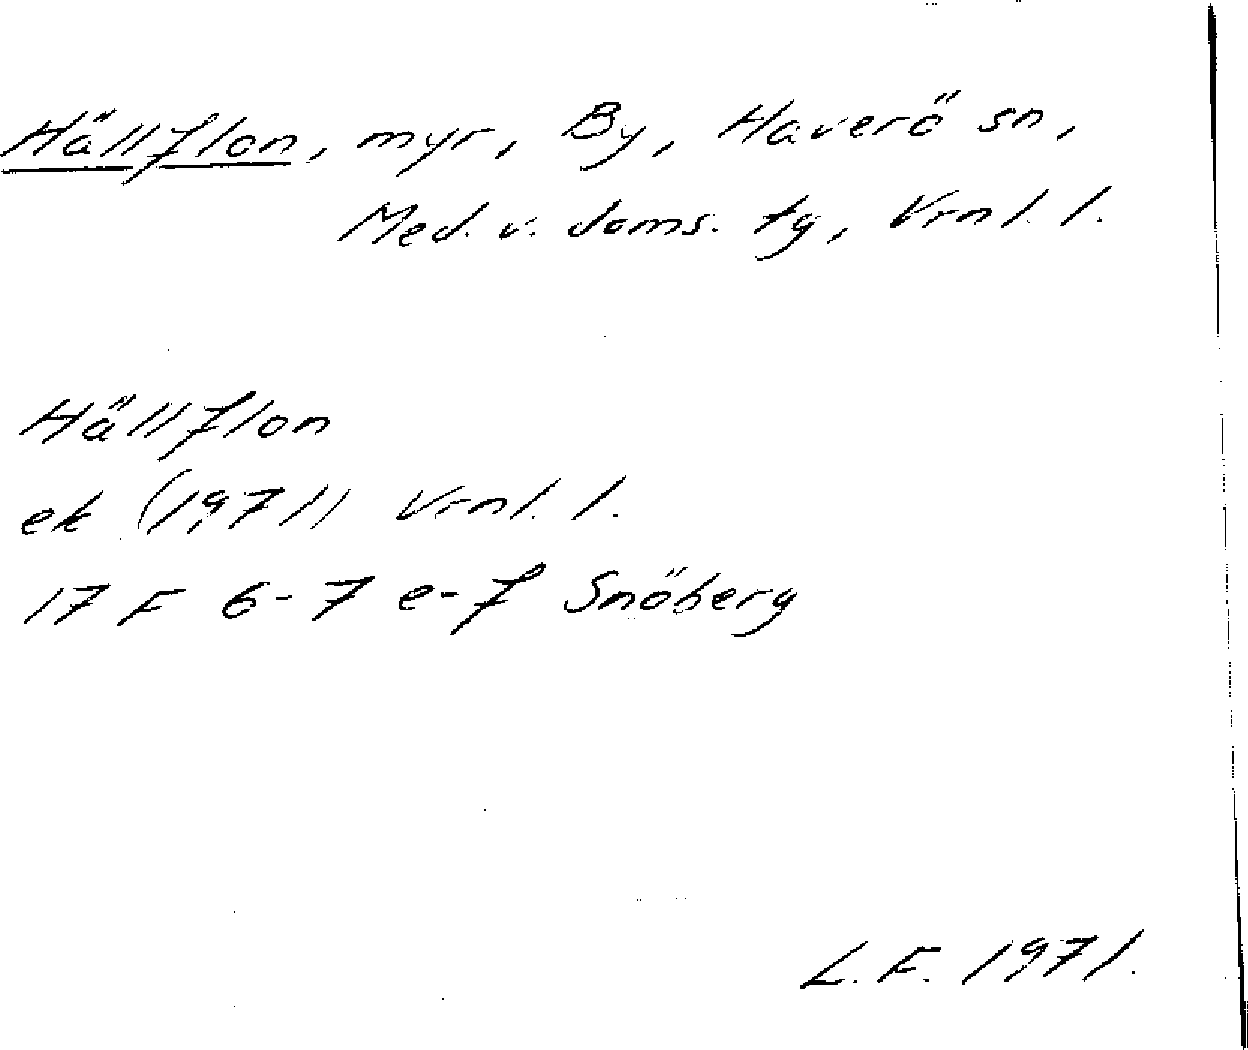 Hällflon, myr, By, Haverö sn,
Med. v. doms. tg, Vrnl. l.
Hällflon
ek (1971) Vrnl. l.
17 F 6-7 e-f Snöberg
L.F. 1971.